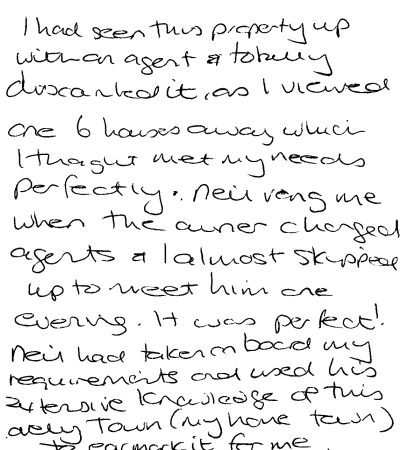 I had seen this property up
with an agent & totally
discarded it, as I viewed
one 6 houses away which
I thought met my needs
perfectly. Neil rang me
when the owner changed
agents & I almost skipped
up to meet him one
evening. It was perfect!
Neil had taken on board my
requirements and used his
extensive knowledge of this
lovely Town (my home town)
to earmark it for me.